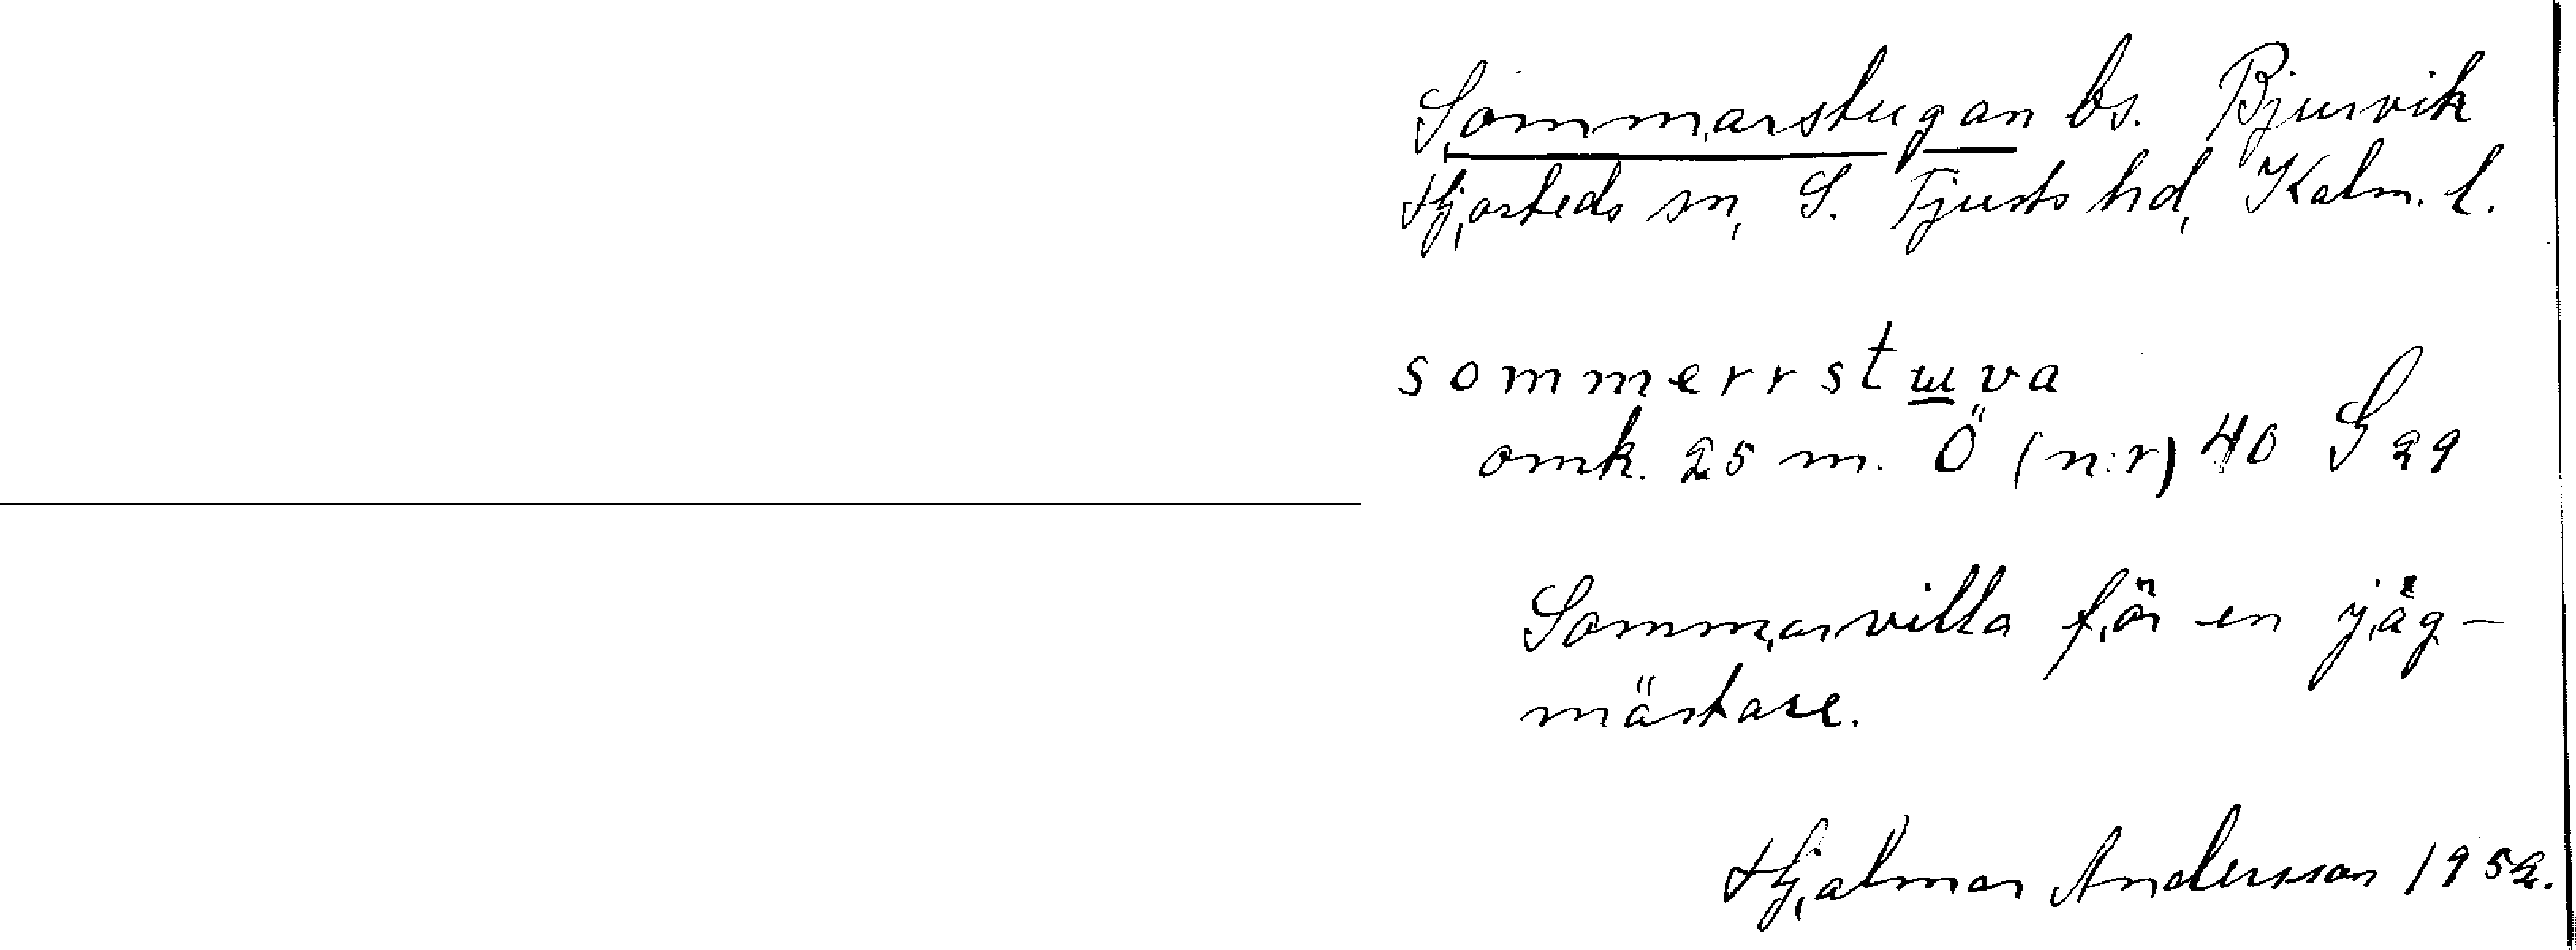 Sommarstugan bs. Bjursvik
Hjorteds sn, S. Tjusts hd, Kalm. l.
sommerrstɯva
omk. 25 m. Ö (n:r) 40 S 29
Sommarvilla för en jäg-
mästare.
Hjalmar Andersson 1952.